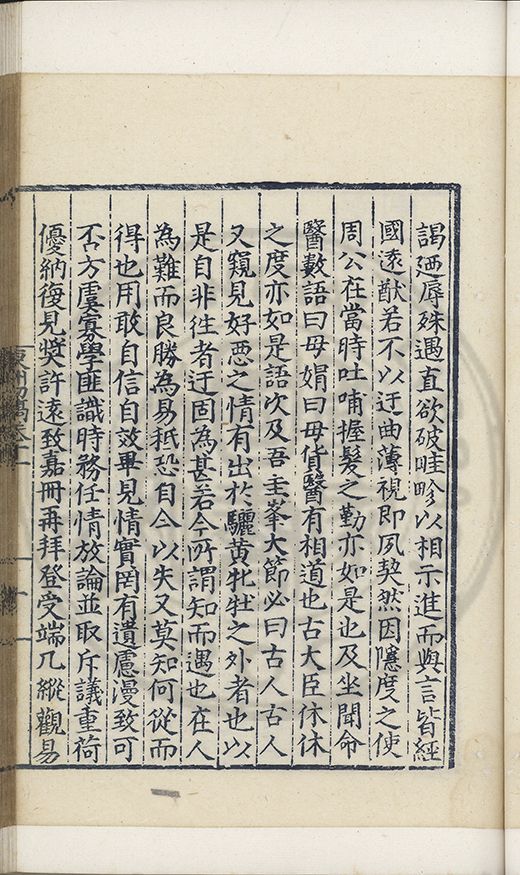 謁迺辱殊遇直欲破畦畛以相示進而與言皆經
國遠猷若不以迂曲薄視即夙契然因隱度之使
周公在當時吐哺握髮之勤亦如是也及坐聞命
醫數語曰毋娟曰毋貨醫有相道也古大臣休休
之度亦如是語次及吾圭峯大節必曰古人古人
又窺見好惡之情有出於驪黃牝牡之外者也以
是自非徃者迂固為甚若今所謂知而遇也在人
為難而良勝為易秪恐自今以失又莫知何從而
得也用敢自信自效畢見情實罔有遺慮漫致可
否方虞寡學匪識時務任情放論並取斥議重荷
優納復見奬許遠致嘉冊再拜登受端几縱觀易